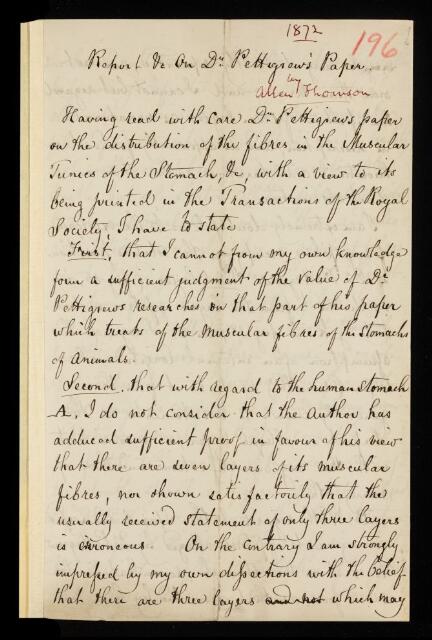 1872
196
Report &c On Dr. Pettigrew's Paper
by
Allen Thomson
Having read with care Dr. Pettigrew's paper
on the distribution of the fibres in the Muscular
Tunics of the Stomach, &c, with a view to its
being printed in the Transactions of the Royal
Society, I have to state
First, that I cannot from my own knowledge
form a sufficient judgment of the value of Dr.
Pettigrew's researches in that part of his paper
which treats of the muscular fibres of the Stomachs
of animals.
Second, that with regard to the human stomach
A. I do not consider that the author has
adduced sufficient proof in favour of his view
that there are seven layers of its muscular
fibres, nor shown satisfactorily that the
usually received statement of only three layers
is erroneous. On the contrary I am strongly
impressed by my own dissections with the belief
that there are three layers and not which may